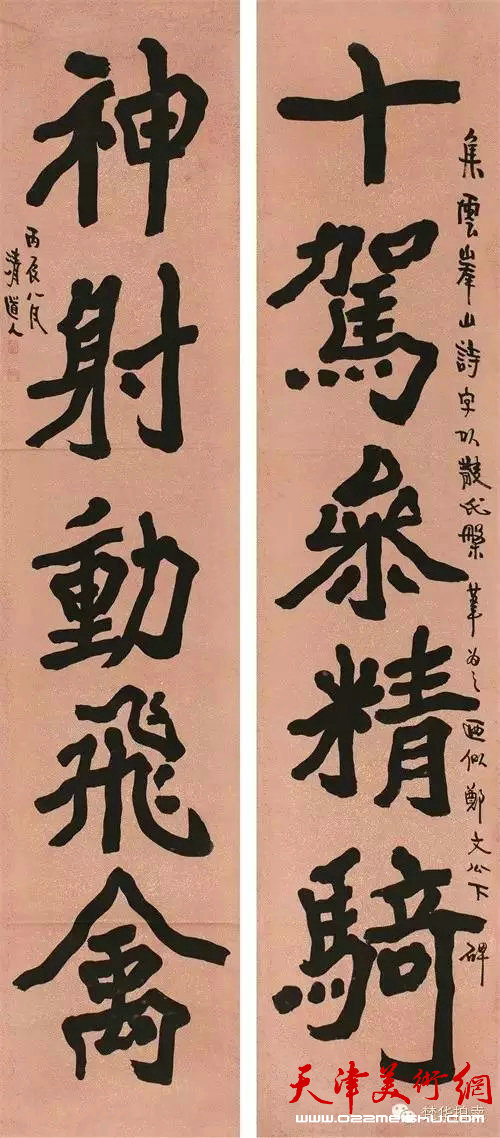 十駕參精騎
集雲峯山詩字以散氏盤筆為之廼似鄭文公下碑
神射動飛禽
丙辰八月
清道人
天津美術網
www.022meishu.com